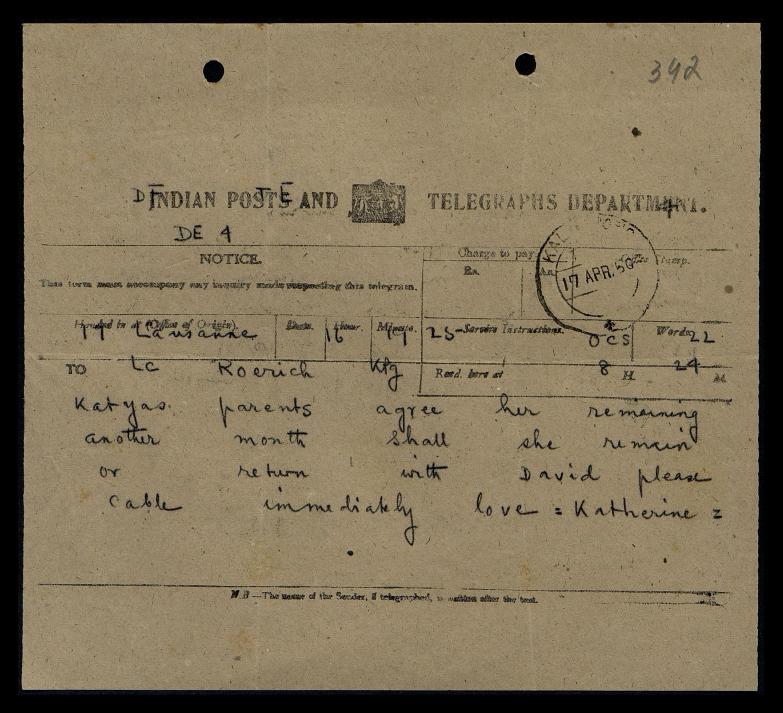 392
INDIAN POSTS AND TELEGRAPHS DEPARTMENT.
DE 4
NOTICE.
Charge to pay.
This form must accompany any inquiry made respecting this telegram.
Rs. An.
17 APR. 50
Handed in at (Office of Origin). Date. Hour. Minute. Service Instructions. Words.
Lausanne 16 25 OCS 22
TO LC Roerich Klg Recd. here at 8 H. 24 M.
Katyas parents agree her remaining
another month shall she remain
or return with David please
cable immediately love = Katherine =
N.B.—The name of the Sender, if telegraphed, is written after the text.